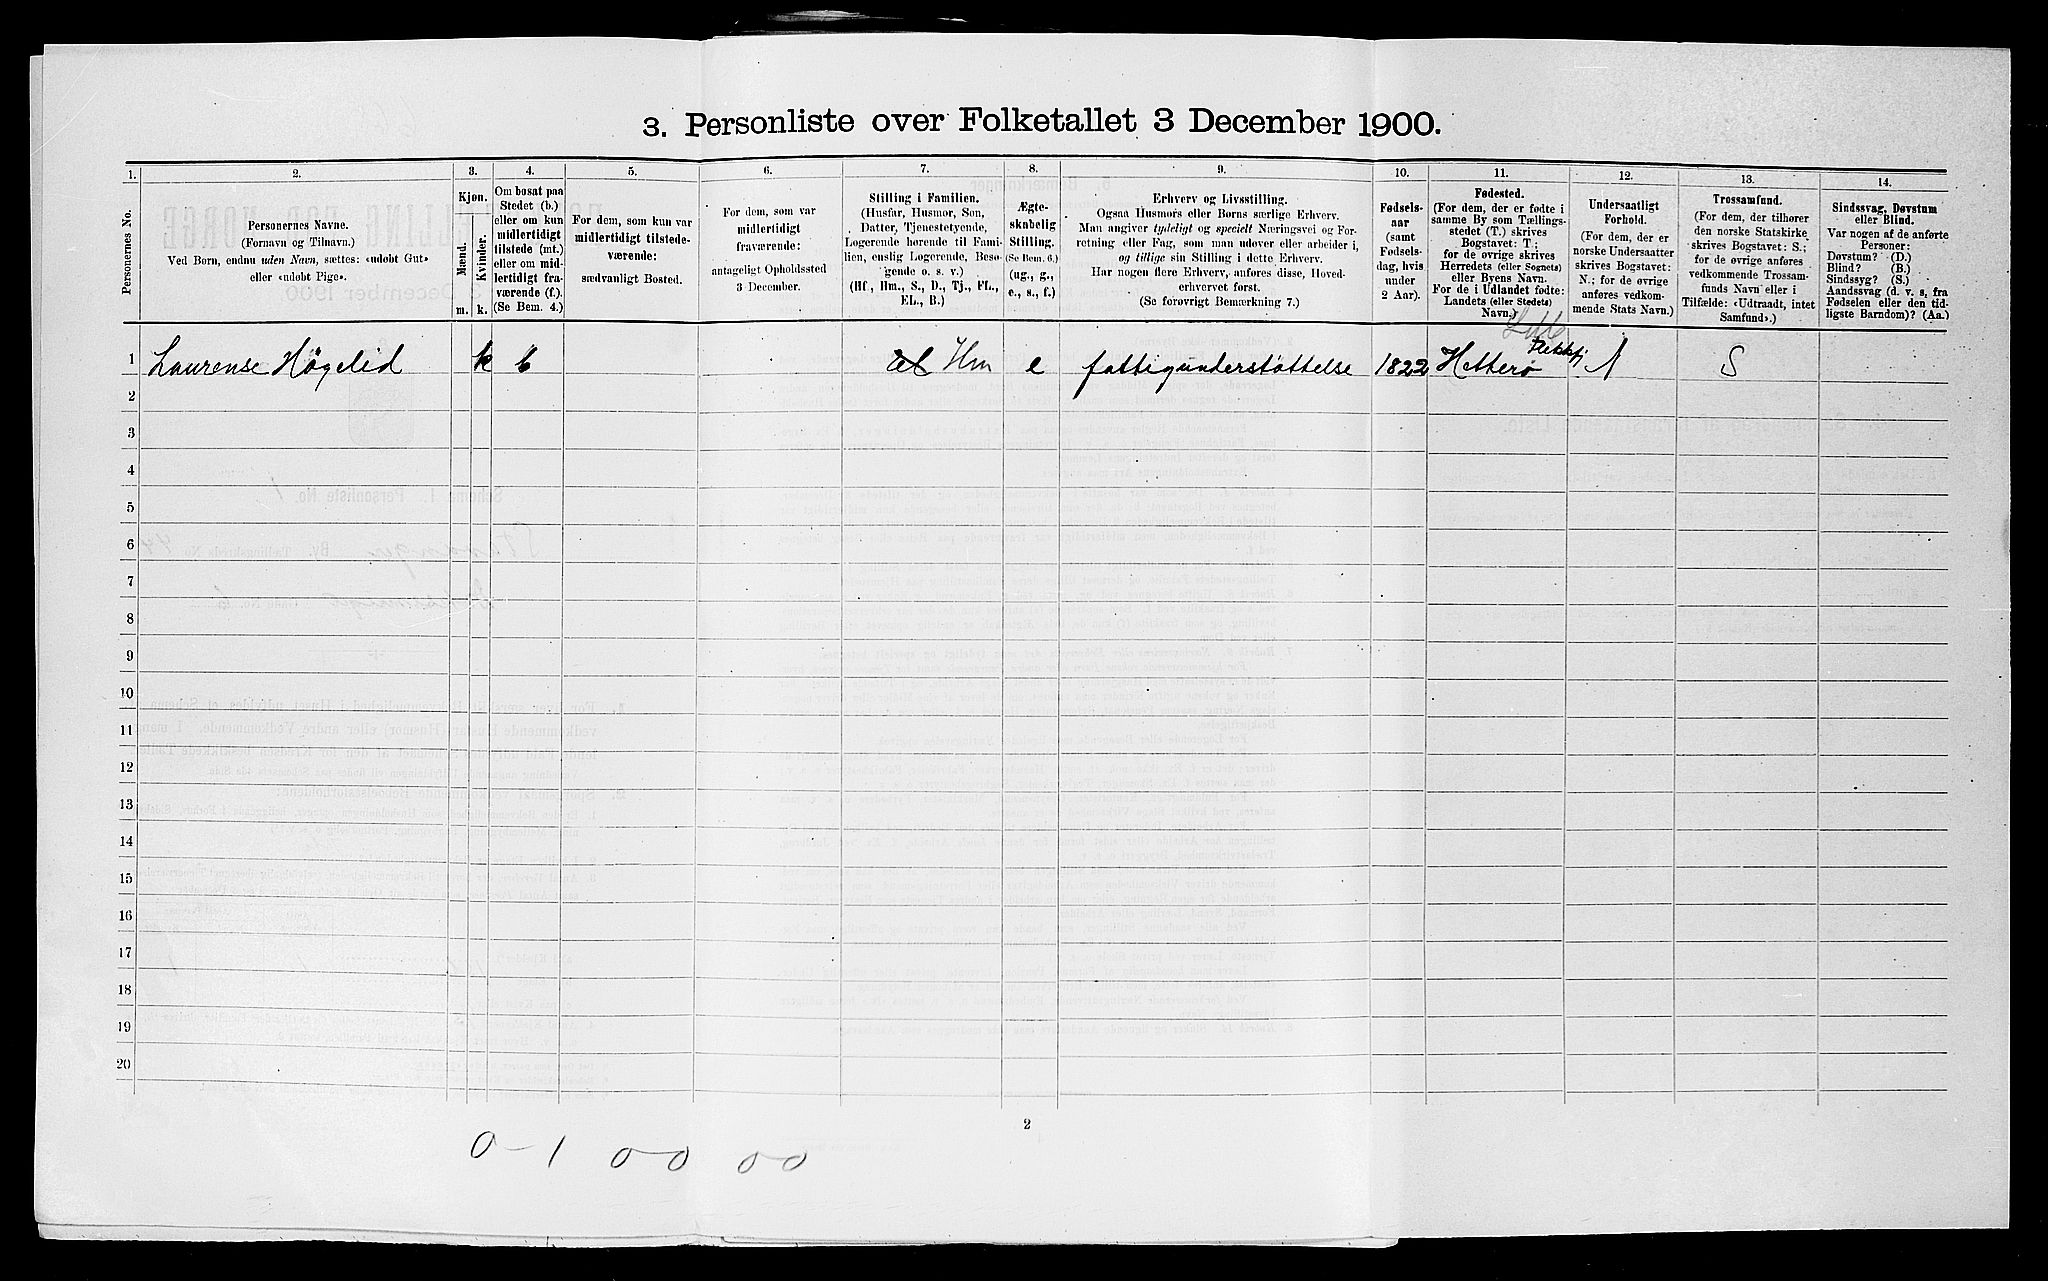 3. Personliste over Folketallet 3 December 1900.
1.
2.
3.
4.
5.
6.
7.
8.
9.
10.
11.
12.
13.
14.
Personernes No.
Personernes Navne.
(Fornavn og Tilnavn.)
Ved Børn, endnu uden Navn, sættes: «udøbt Gut»
eller «udøbt Pige».
Kjøn.
Mænd.
Kvinder.
m.
k.
Om bosat paa
Stedet (b.)
eller om kun
midlertidigt
tilstede (mt.)
eller om mid-
lertidigt fra-
værende (f.).
(Se Bem. 4.)
For dem, som kun var
midlertidigt tilstede-
værende:
sædvanligt Bosted.
For dem, som var
midlertidigt
fraværende:
antageligt Opholdssted
3 December.
Stilling i Familien.
(Husfar, Husmor, Søn,
Datter, Tjenestetyende,
Logerende hørende til Fami-
lien, enslig Logerende, Besø-
gende o. s. v.)
(Hf., Hm., S., D., Tj., FL.,
EL., B.)
Ægte-
skabelig
Stilling.
(Se Bem. 6.)
(ug., g.,
e., s., f.)
Erhverv og Livsstilling.
Ogsaa Husmors eller Børns særlige Erhverv.
Man angiver tydeligt og specielt Næringsvei og For-
retning eller Fag, som man udøver eller arbeider i,
og tillige sin Stilling i dette Erhverv.
Har nogen flere Erhverv, anføres disse, Hoved-
erhvervet først.
(Se forøvrigt Bemærkning 7.)
Fødsels-
aar
(samt
Fødsels-
dag, hvis
under
2 Aar).
Fødested.
(For dem, der er fødte i
samme By som Tællings-
stedet (T.) skrives
Bogstavet: T.;
for de øvrige skrives
Herredets (eller Sognets)
eller Byens Navn.
For de i Udlandet fødte:
Landets (eller Stedets)
Navn.)
Undersaatligt
Forhold.
(For dem, der er
norske Undersaatter
skrives Bogstavet:
N.; for de øvrige
anføres vedkom-
mende Stats Navn.)
Trossamfund.
(For dem, der tilhører
den norske Statskirke
skrives Bogstav: S.;
for de øvrige anføres
vedkommende Trossam-
funds Navn eller i
Tilfælde: «Udtraadt, intet
Samfund».)
Sindssvag, Døvstum
eller Blind.
Var nogen af de anførte
Personer:
Døvstum? (D.)
Blind? (B.)
Sindssyg? (S.)
Aandssvag (d. v. s. fra
Fødselen eller den tid-
ligste Barndom)? (Aa.)
1 Laurense Høgelid k b el Hm e fattigunderstøttelse 1822 Hetterø N S
2
3
4
5
6
7
8
9
10
11
12
13
14
15
16
17
18
19
20
2
0-1 00 00